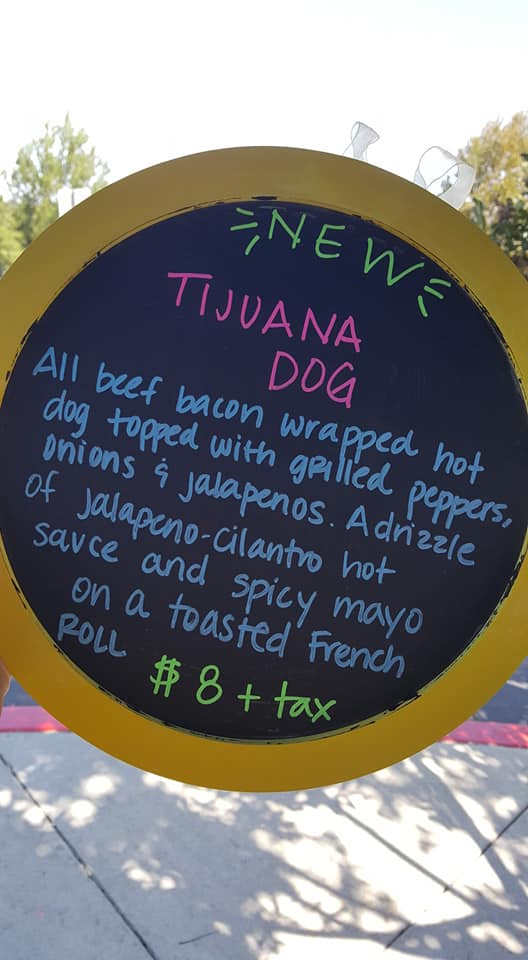 NEW
TIJUANA
DOG
All beef bacon wrapped hot
dog topped with grilled peppers,
onions & jalapenos. A drizzle
of jalapeno-cilantro hot
sauce and spicy mayo
on a toasted French
ROLL
$8 + tax